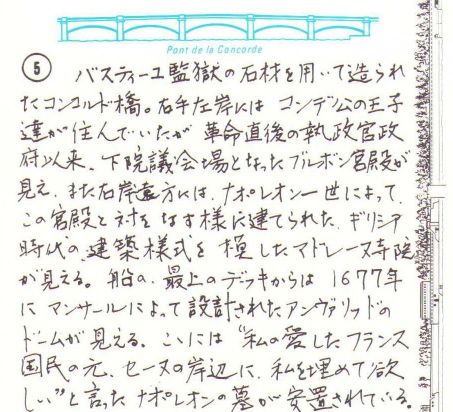 Pont de la Concorde
⑤ バスティーユ監獄の石材を用いて造られ
たコンコルド橋。右手左岸には コンデ公の王子
達が住んでいたが 革命直後の執政官政
府以来、下院議会場となったブルボン宮殿が
見え、また右岸遠方には、ナポレオン一世によって、
この宮殿と対をなす様に建てられた、ギリシア
時代の建築様式を模したマドレーヌ寺院
が見える。船の、最上のデッキからは 1677年
に マンサールによって設計されたアンヴァリッドの
ドームが見える。ここには “私の愛したフランス
国民の元、セーヌの岸辺に、私を埋めて欲
しい”と言ったナポレオンの墓が安置されている。